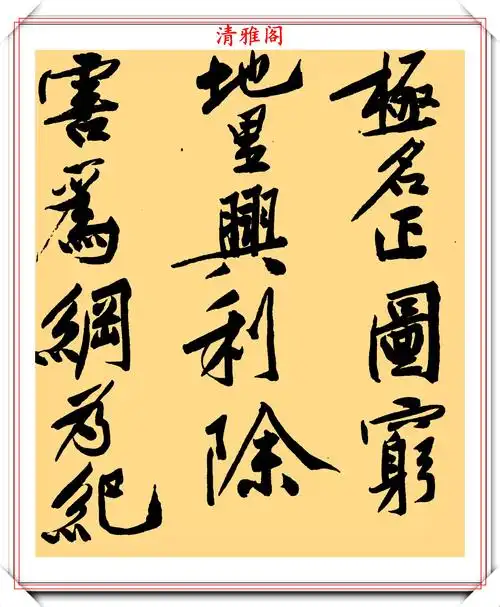 清雅阁
極名正圖窮
地里興利除
害爲綱為紀